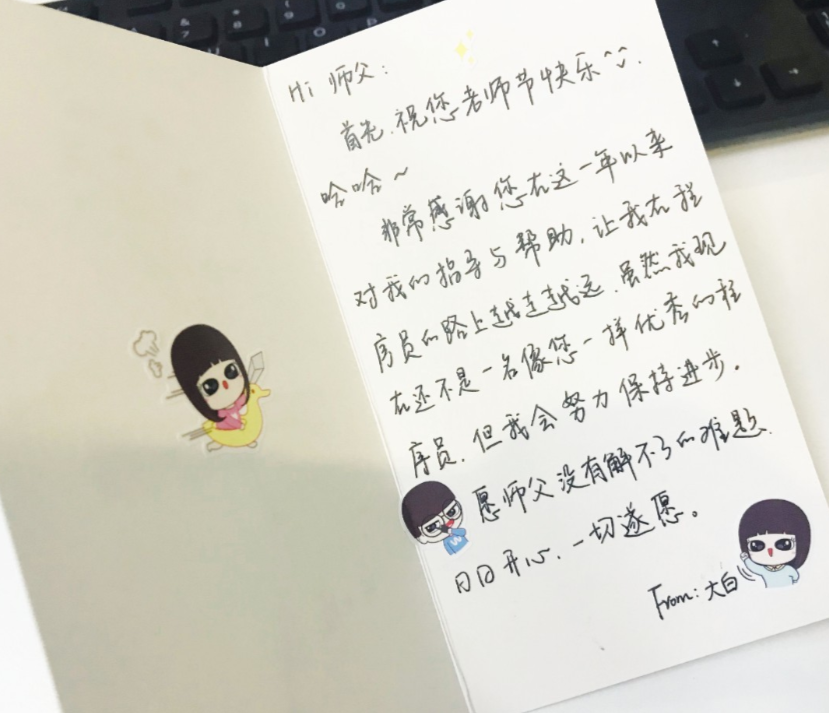 Hi 师父：
首先，祝您老师节快乐^^.
哈哈~
非常感谢您在这一年以来
对我的指导与帮助，让我在程
序员的路上越走越远，虽然我现
在还不是一名像您一样优秀的程
序员，但我会努力保持进步。
愿师父没有解不了的难题，
日日开心，一切遂愿。
From：大白